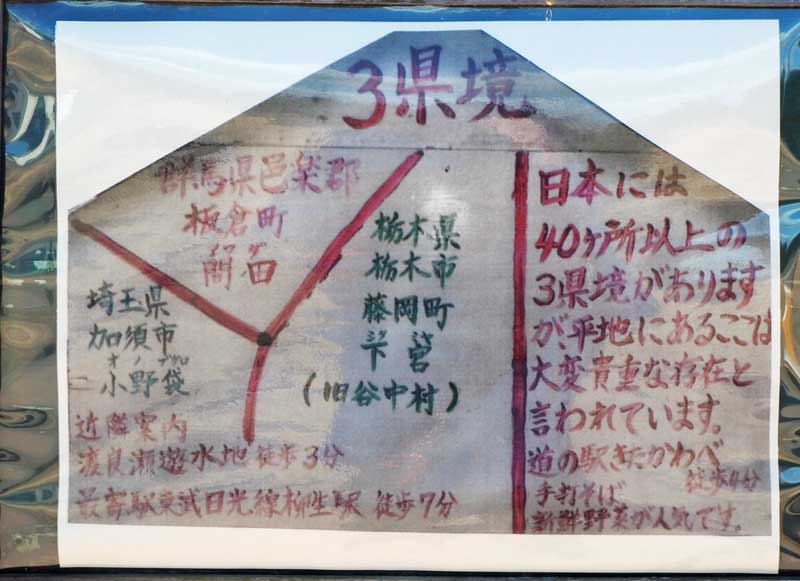 3県境
群馬県邑楽郡
板倉町
栃木県
栃木市
藤岡町
下宮
(旧谷中村)
埼玉県
加須市
小野袋
近隣案内
渡良瀬遊水地 徒歩3分
最寄駅東武日光線柳生駅 徒歩7分
日本には
40ヶ所以上の
3県境があります
が、平地にあるここは
大変貴重な存在と
言われています。
道の駅きたかわべ
徒歩4分
手打そば
新鮮野菜が人気です。